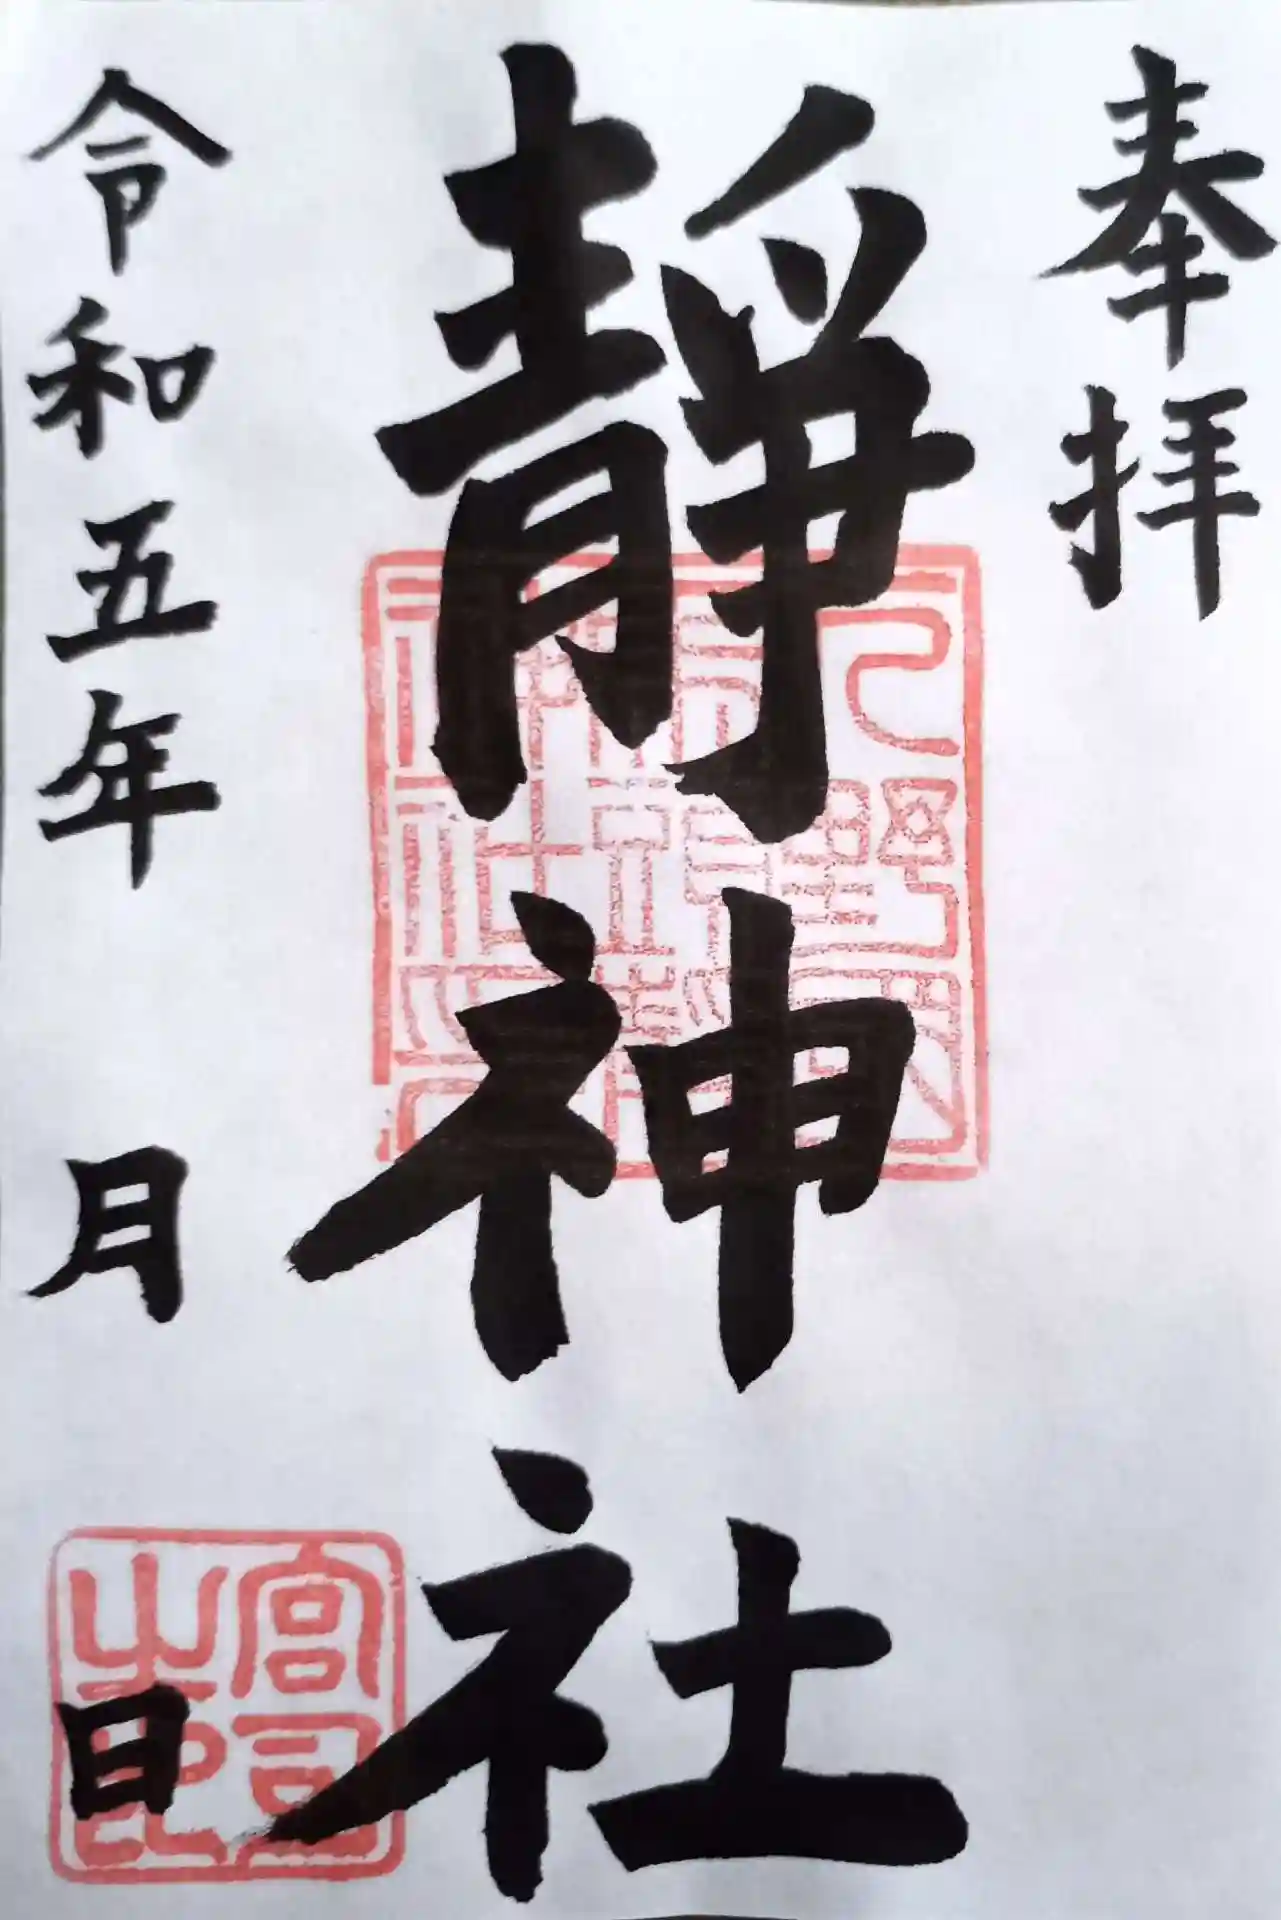 奉拝
靜神社
令和五年 月 日
宮司之印